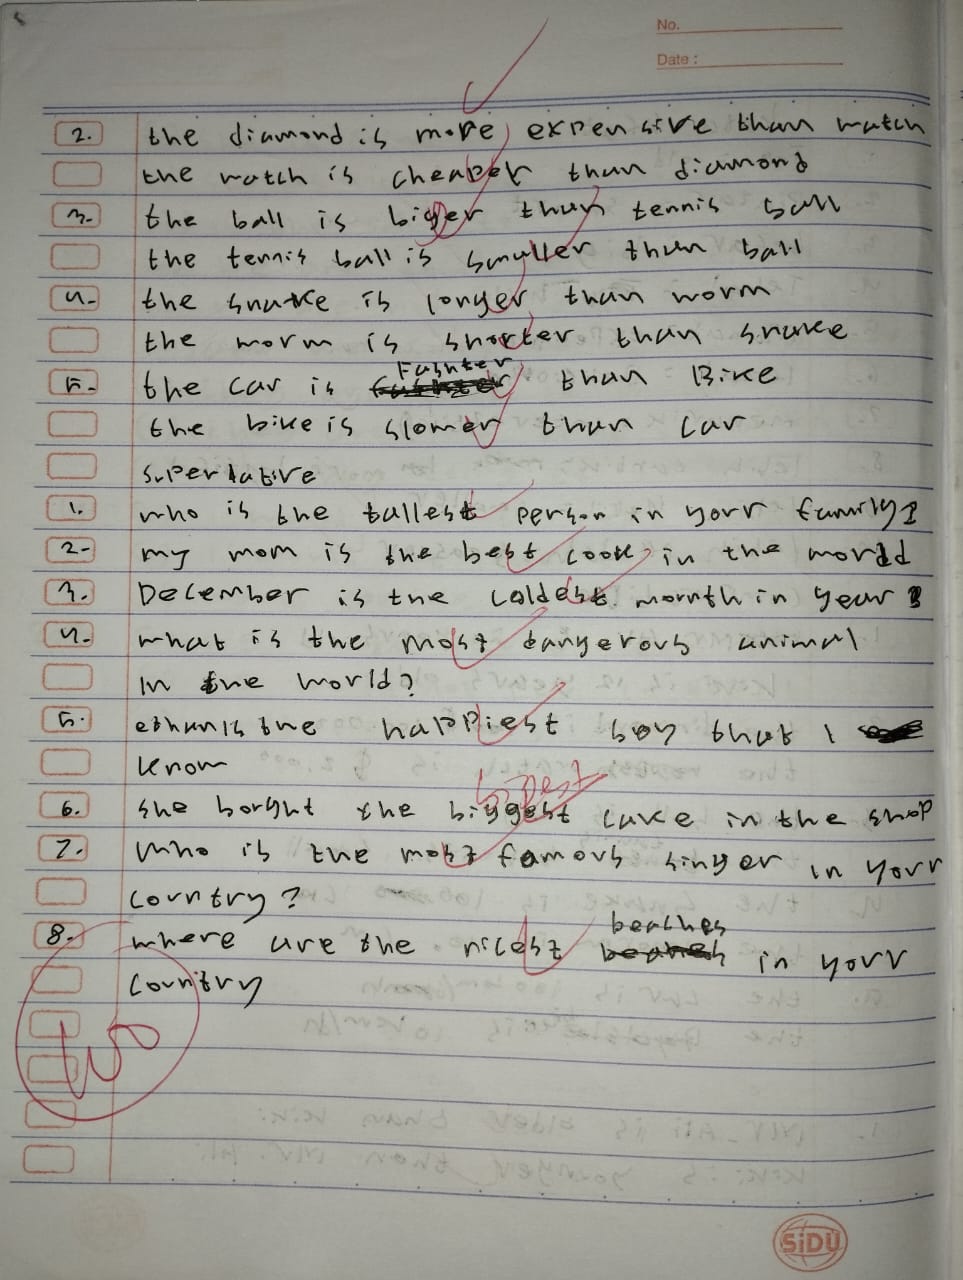 No.
Date :
2. the diamond is more expensive than watch
the watch is cheaper than diamond
3. the ball is bigger than tennis ball
the tennis ball is smaller than ball
4. the snake is longer than worm
the worm is shorter than snake
5. the car is Fashter than Bike
the bike is slower than car
superlative
1. who is the tallest person in your family?
2. my mom is the best cook in the world
3. December is the coldest month in year
4. what is the most dangerous animal
In the world?
5. ethan is the happiest boy that I
know
6. she bought the biggest cake in the shop
7. Who is the most famous singer in your
country?
8. where are the nicest beaches in your
country
SiDU